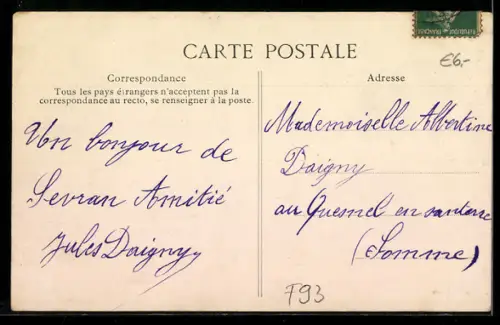 CARTE POSTALE
€6.-
Correspondance
Tous les pays étrangers n'acceptent pas la
correspondance au recto, se renseigner à la poste
Un bonjour de
Sevran Amitié
Jules Daigny
Adresse
Mademoiselle Albertine
Daigny
au Quesnel en santerre
(Somme)
F93